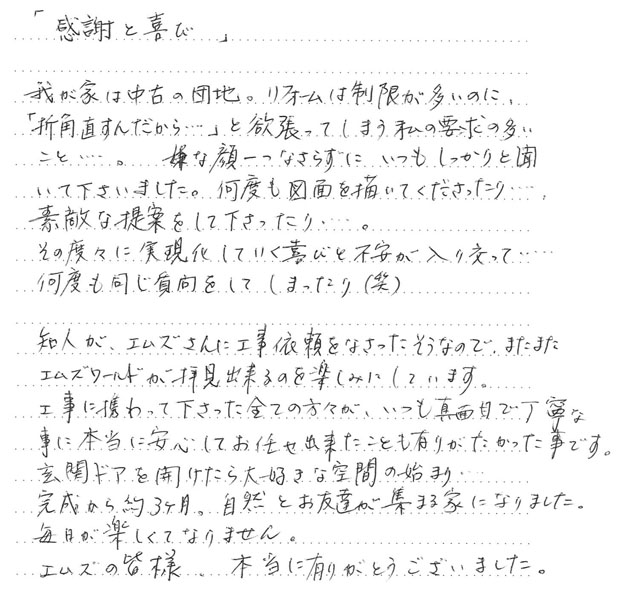 「感謝と喜び」
我が家は中古の団地。リフォームは制限が多いのに、
「折角直すんだから…」と欲張ってしまう私の要求の多い
こと…。 嫌な顔一つなさらずに いつもしっかりと聞
いて下さいました。何度も図面を描いてくださったり…、
素敵な提案をして下さったり…。
その度々に実現化していく喜びと不安が入り交って……
何度も同じ質問をしてしまったり(笑)
知人が、エムズさんに工事依頼をなさったそうなので、またまた
エムズワールドが拝見出来るのを楽しみにしています。
工事に携わって下さった全ての方々が、いつも真面目で丁寧な
事に本当に安心してお任せ出来たことも有りがたかった事です。
玄関ドアを開けたら大好きな空間の始まり…
完成から約3ヶ月。自然とお友達が集まる家になりました。
毎日が楽しくてなりません。
エムズの皆様、本当に有りがとうございました。